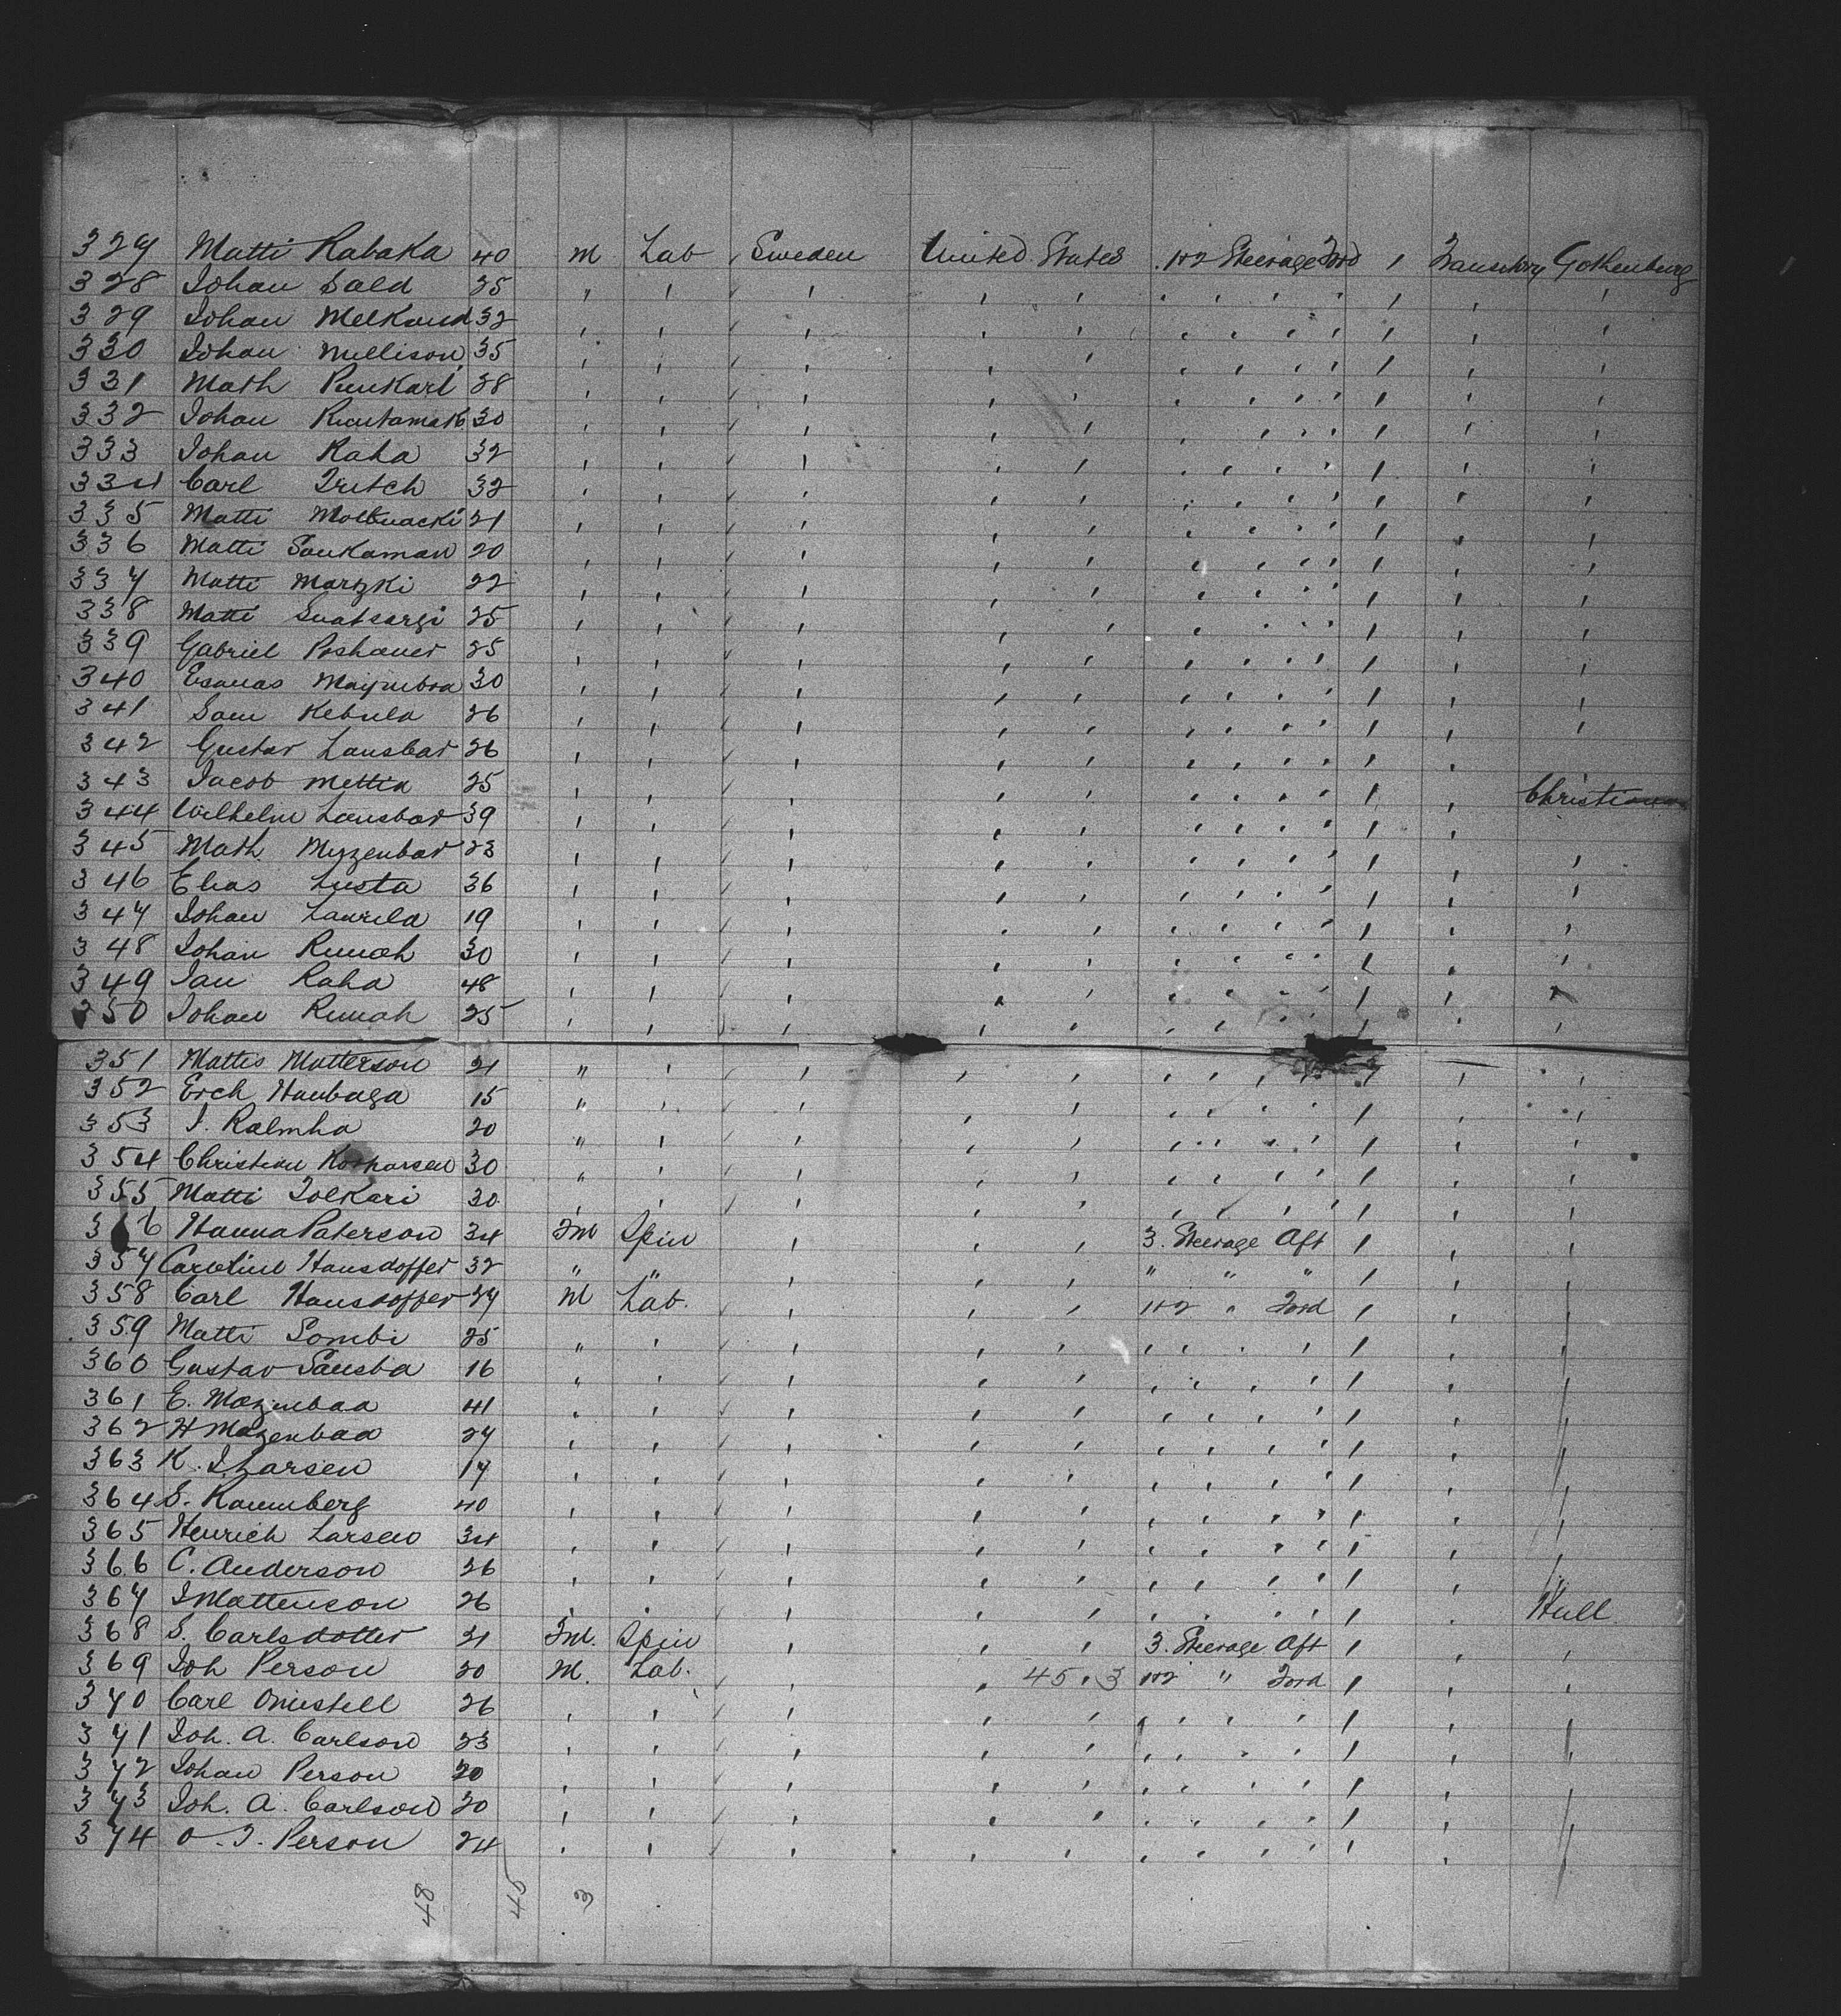 327 Matti Rabaka 40 M Lab Sweden United States 1&2 Steerage Ford 1 Transitory Gothenburg
328 Johan Sald 25 " " " " " " " " 1 " "
329 Johan Melkand 32 " " " " " " " " 1 " "
330 Johan Mellison 35 " " " " " " " " 1 " "
331 Math Punkari 28 " " " " " " " " 1 " "
332 Johan 30 " " " " " " " " 1 " "
333 Johan Raha 32 " " " " " " " " 1 " "
334 Carl Tritch 32 " " " " " " " " 1 " "
335 Matti 21 " " " " " " " " 1 " "
336 Matti Saukaman 20 " " " " " " " " 1 " "
337 Matti Martzki 22 " " " " " " " " 1 " "
338 Matti 25 " " " " " " " " 1 " "
339 Gabriel Poshauer 25 " " " " " " " " 1 " "
340 Esauas 30 " " " " " " " " 1 " "
341 Sam Kebula 26 " " " " " " " " 1 " "
342 Gustav Lansbar 26 " " " " " " " " 1 " "
343 Jacob Mettia 25 " " " " " " " " 1 " Christiana
344 Wilhelm Lansbar 39 " " " " " " " " 1 "
345 Math. Myzenbar 23 " " " " " " " " 1 " "
346 Elias Lusta 36 " " " " " " " " 1 " "
347 Johan Laurila 19 " " " " " " " " 1 " "
348 Johan Runah 30 " " " " " " " " 1 " "
349 Jan Raha 48 " " " " " " " " 1 " "
350 Johan Runah 25 " " " " " " " " 1 " "
351 Mattis Matterson 21 " " " " " " " " 1 " "
352 Erch Haubaga 15 " " " " " " " " 1 " "
353 J. Ralmha 20 " " " " " " " " 1 " "
354 Christian 30 " " " " " " " " 1 " "
355 Matti Tolkari 30 " " " " " " " " 1 " "
3 6 Hanna Paterson 34 Fm Spin " " " 3. Steerage Aft 1 " "
357 Caroline Hansdoffer 32 " " " " " " " " 1 "
358 Carl Hansdoffer 27 M Lab. " " " 1&2 " Ford 1 "
359 Matti Sombi 25 " " " " " " " " 1 "
360 Gustav Sausba 16 " " " " " " " " 1 "
361 E. Mazenbaa 41 " " " " " " " " 1 "
362 H Mazenbaa 27 " " " " " " " " 1 "
363 K. J. Larsen 17 " " " " " " " " 1 "
364 S. Raumberg 40 " " " " " " " " 1 "
365 Henrich Larsen 34 " " " " " " " " 1 "
366 C. Anderson 26 " " " " " " " " 1 "
367 J Mattenson 26 " " " " " " " " 1 " Hull
368 S. Carlsdotter 21 Fm. Spin " " " 3. Steerage Aft 1 " "
369 Joh Person 20 M. Lab. " " 45 . 3 1&2 " Ford 1 " "
370 Carl 26 " " " " " " " " 1 "
371 Joh. A. Carlson 23 " " " " " " " " 1 "
372 Johan Person 20 " " " " " " " " 1 "
373 Joh. A. Carlson 20 " " " " " " " " 1 "
374 O. J. Person 24 " " " " " " " " 1 "
48 45 3